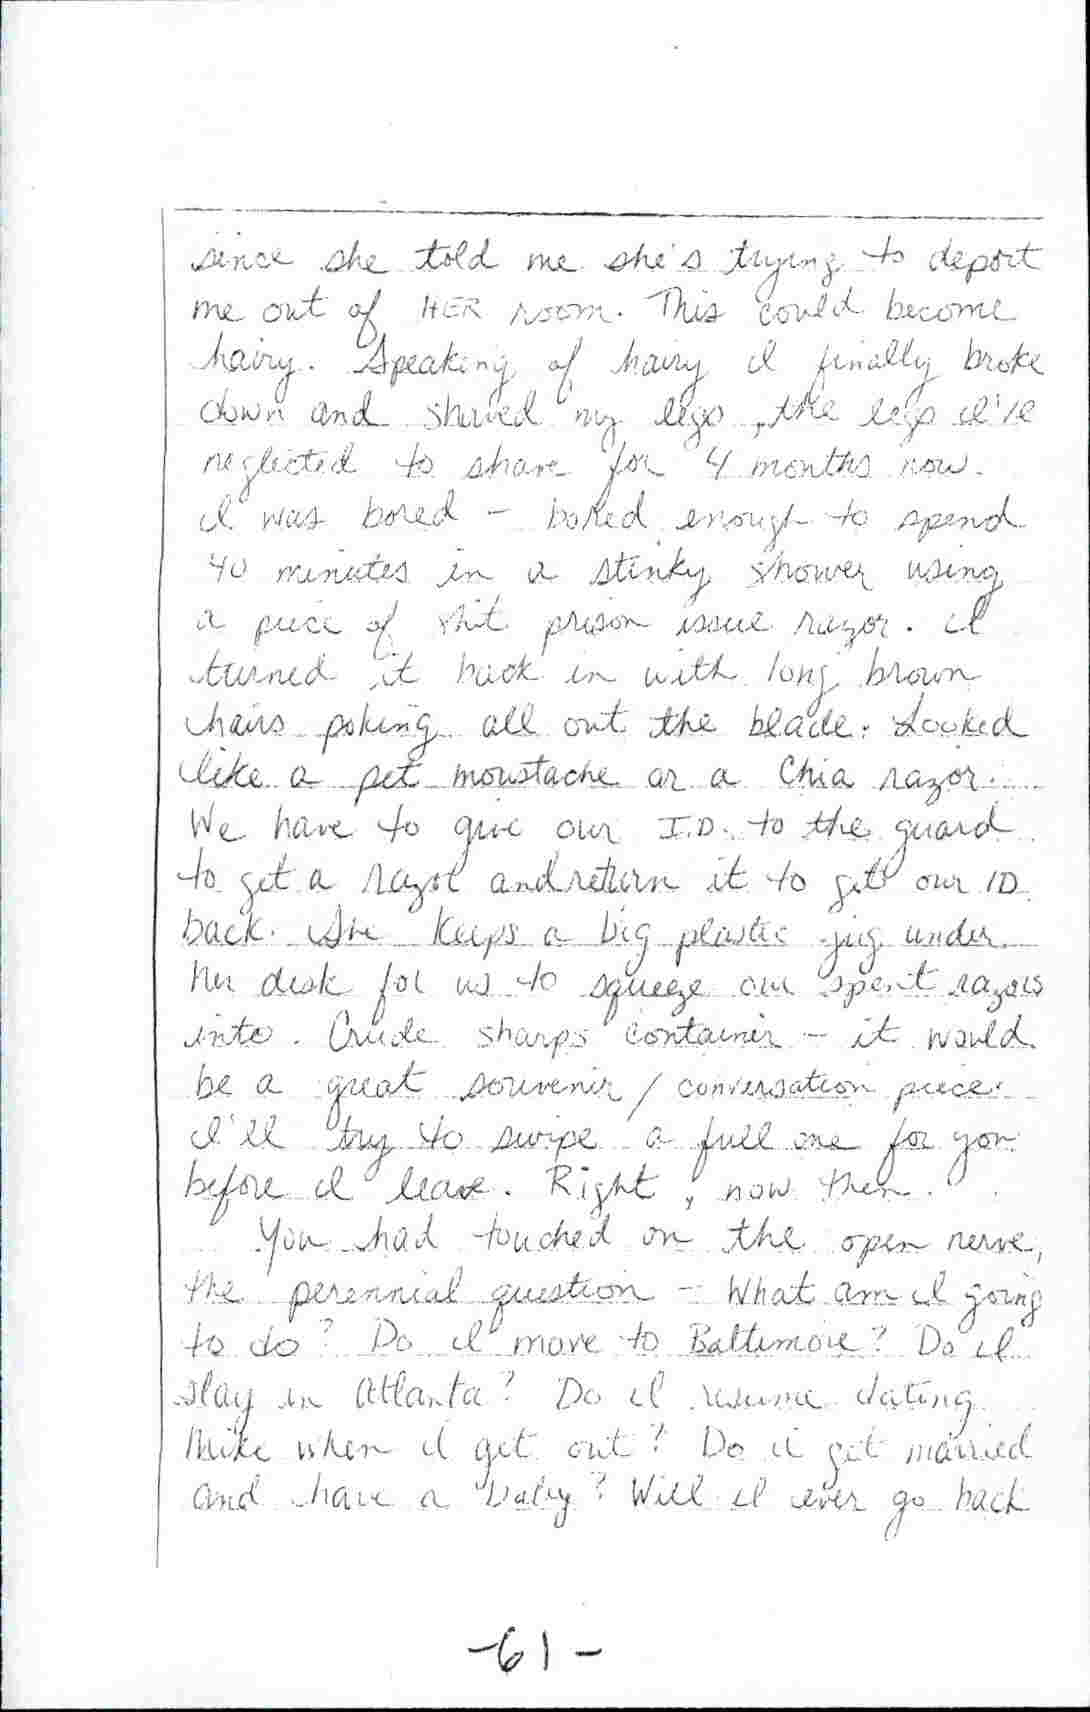 since she told me she's trying to deport
me out of HER room. This could become
hairy. Speaking of hairy I finally broke
down and shaved my legs, the legs I've
neglected to shave for 4 months now.
I was bored - bored enough to spend
40 minutes in a stinky shower using
a piece of shit prison issue razor. I
turned it back in with long brown
hairs poking all out the blade. Looked
like a pet moustache or a Chia razor.
We have to give our I.D. to the guard
to get a razor and return it to get our ID
back. She keeps a big plastic jug under
her desk for us to squeeze our spent razors
into. Crude sharps container - it would
be a great souvenir / conversation piece.
I'll try to swipe a full one for you
before I leave. Right, now then.
You had touched on the open nerve,
the perennial question - What am I going
to do? Do I move to Baltimore? Do I
stay in Atlanta? Do I resume dating
Mike when I get out? Do I get married
and have a baby? Will I ever go back
-61-